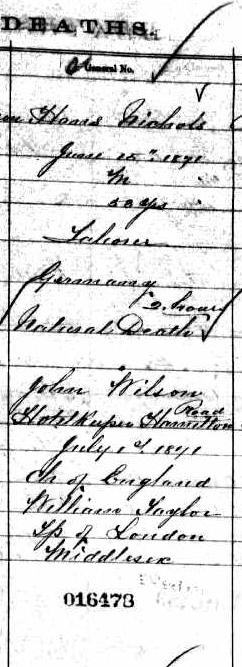 DEATHS.
General No.
Hans Nichols
June 15th 1891
M
53 yrs
Laborer
Germany
2 hours
Natural Death
John Wilson
Hotelkeeper Hamilton Road
July 1st 1891
Ch of England
William Taylor
Tp of London
Middlesex
016473